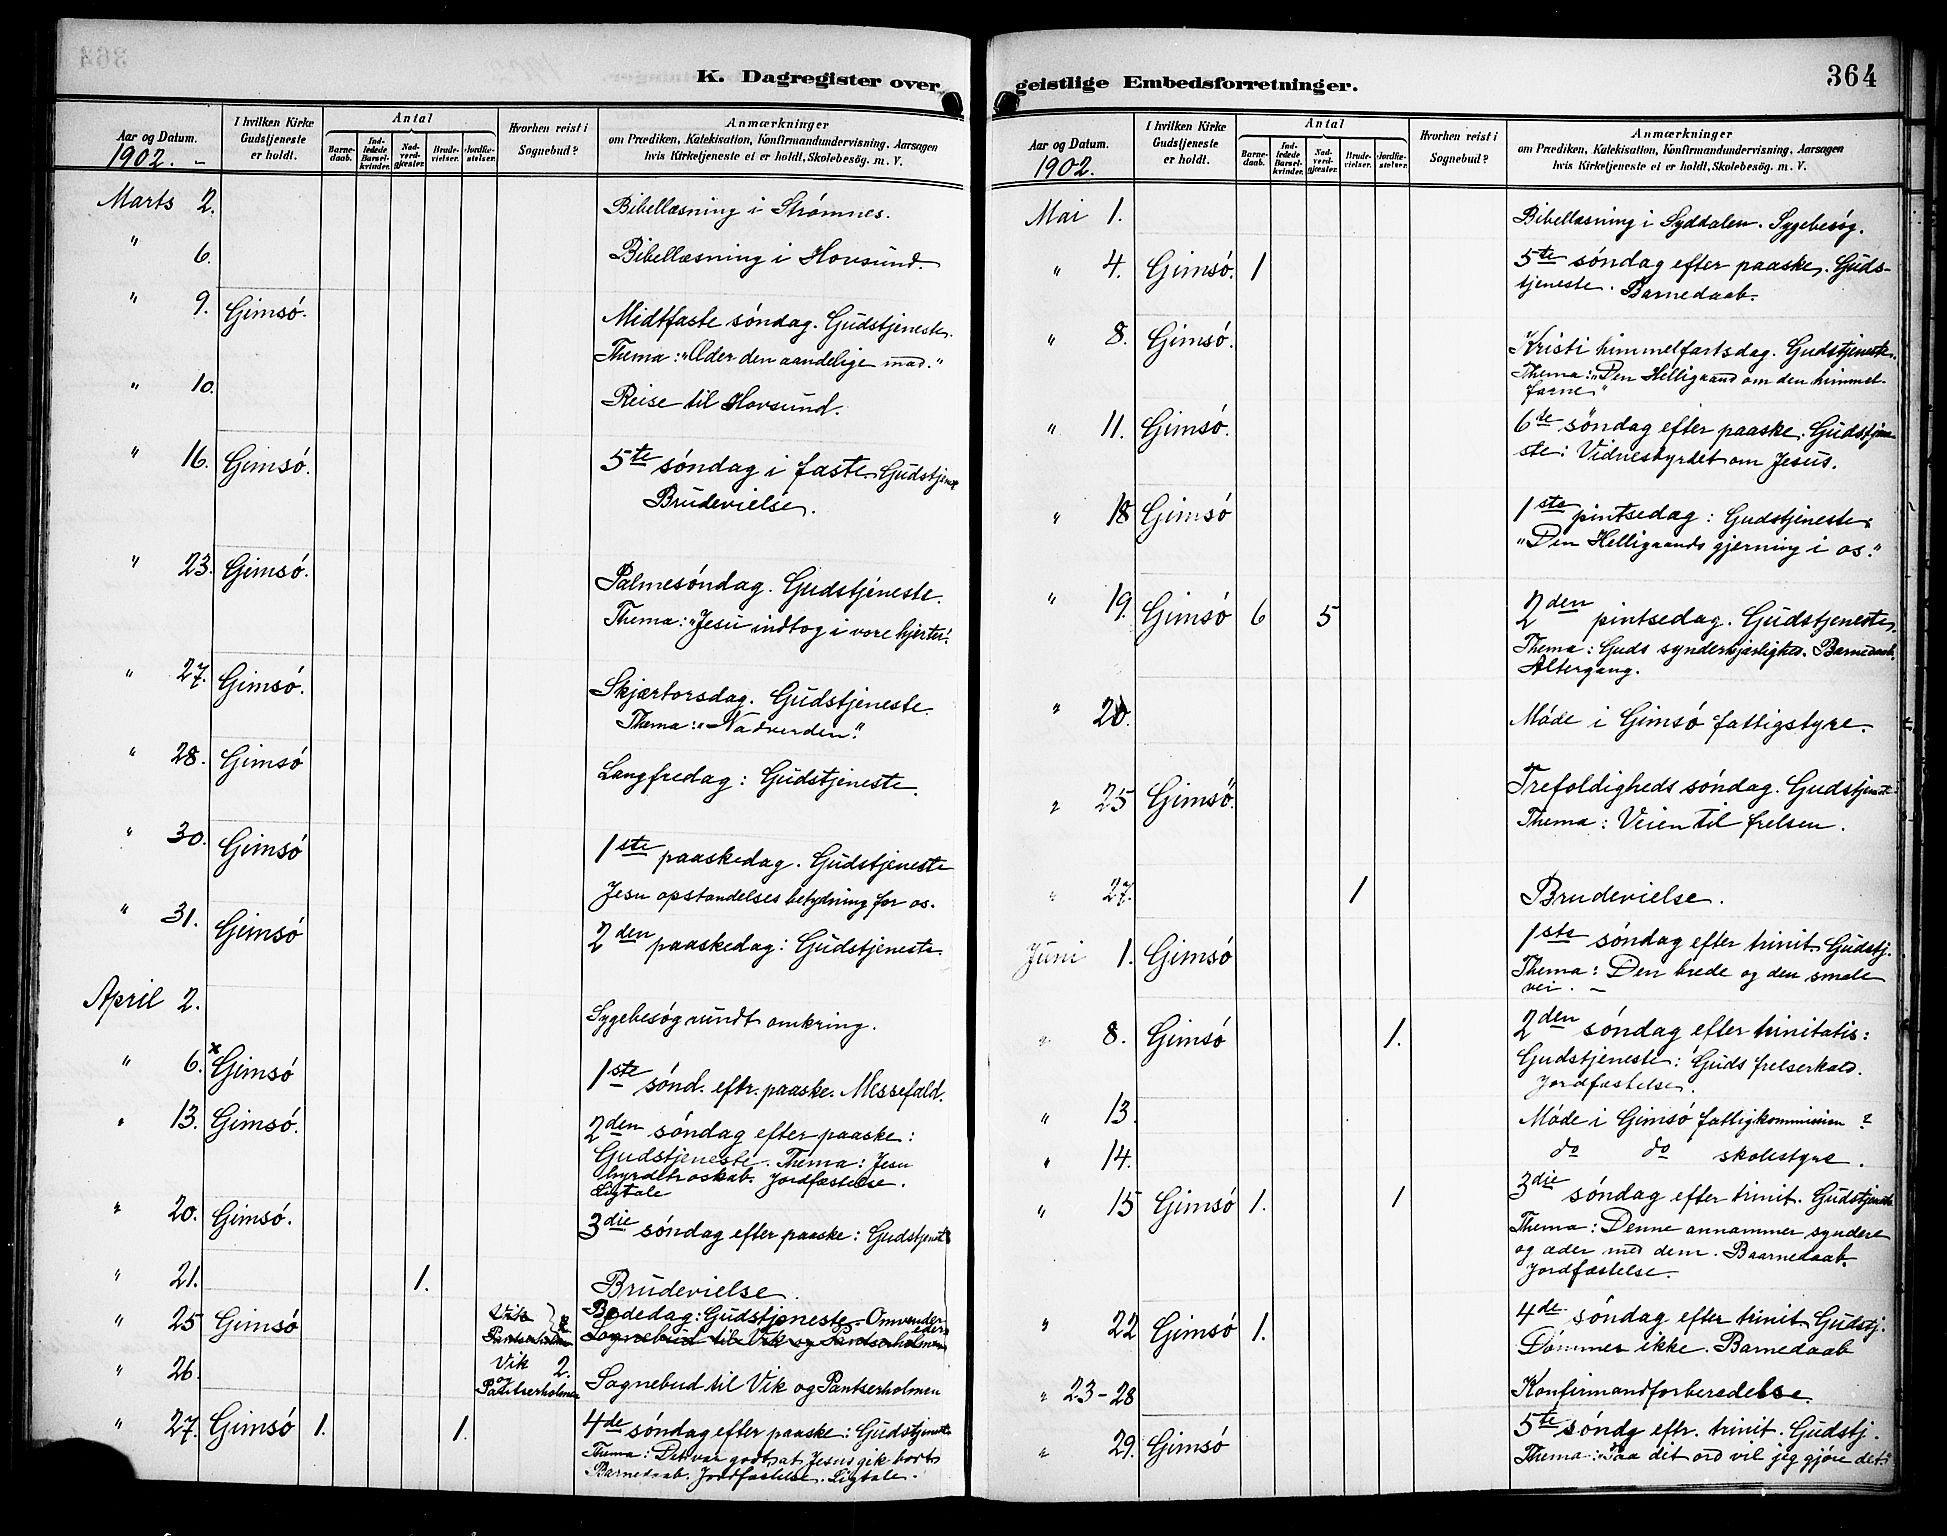 K. Dagregister over
Aar og Datum.
1902. -
I hvilken Kirke
Gudstjeneste
er holdt.
Antal
Barne-
daab.
Ind-
ledede
Barsel-
kvinder.
Nad-
verd-
gjæster.
Brude-
vielser.
Jordfæ-
stelser.
Hvorhen reist i
Sognebud?
Anmærkninger
om Prædiken, Katekisation, Konfirmandundervisning, Aarsagen
hvis Kirketjeneste ei er holdt, Skolebesög. m. V.
Marts 2. Bibellæsning i Strømnes.
" 6. Bibellæsning i Hovsund.
" 9. Gimsó. Midtfaste søndag. Gudstjeneste.
Thema: "Æder den aandelige mad."
" 10. Reise til Hovsund.
" 16. Gimsó. 5te søndag i faste. Gudstjen
Brudevielse.
" 23. Gimsó. Palmesøndag. Gudstjeneste.
Thema: "Jesu indtog i vore hjerter."
" 27. Gimsó. Skjærtorsdag. Gudstjeneste.
Thema: "Nadverden."
" 28. Gimsó Langfredag: Gudstjeneste.
" 30. Gimsó 1ste paaskedag. Gudstjeneste
Jesu opstandelses betydning for os.
" 31. Gimsó 2den paaskedag: Gudstjeneste.
April 2. Sygebesøg rundt omkring.
" 6. x Gimsó 1ste sónd. eftr. paaske. Messefald.
" 13. Gimsó. 2den søndag efter paaske:
Gudstjeneste. Thema: Jesu
hyrdetroskab. Jordfæstelse.
Ligtale
" 20. Gimsó. 3die søndag efter paaske: Gudstjenst
" 21. 1. Brudevielse.
" 25 Gimsó Vik 2 Bededag: Gudstjeneste. Omvender
eder
Pantserholmen Sognebud til Vik og Pantserholmen
" 26. Vik 2.
og
Pantserholmen Sognebud til Vik og Pantserholmen
" 27. Gimsó 1. 1. 4de søndag efter paaske: Gudstjenste
Thema: Det var godt at Jesus gik bort.
Barnedaab. Jordfæstelse. Ligtale.
geistlige Embedsforretninger.
364
Aar og Datum.
1902.
I hvilken Kirke
Gudstjeneste
er holdt.
Antal
Barne-
daab.
Ind-
ledede
Barsel-
kvinder.
Nad-
verd-
gjæster.
Brude-
vielser.
Jordfæ-
stelser.
Hvorhen reist i
Sognebud?
Anmærkninger
om Prædiken, Katekisation, Konfirmandundervisning, Aarsagen
hvis Kirketjeneste ei er holdt, Skolebesög. m. V.
Mai 1. Bibellæsning i Syddalen. Sygebesøg.
" 4. Gimsó. 1 5te søndag efter paaske. Guds-
tjeneste. Barnedaab.
" 8. Gimsó. Kristi himmelfartsdag. Gudstjeneste.
Thema: "Den Helligaand om den himmel-
farne"
" 11. Gimsó. 6te søndag efter paaske: Gudstjene-
ste: Vidnesbyrdet om Jesus.
" 18 Gimsó 1ste pintsedag: Gudstjeneste.
"Den Helligaands gjerning i os."
" 19. Gimsó 6 5 2den pintsedag. Gudstjeneste.
Thema: Guds synderkjærlighed. Barnedaab.
Altergang.
" 20. Møde i Gimsó fattigstyre.
" 25 Gimsó. Trefoldigheds søndag. Gudstjenste.
Thema: Veien til frelsen.
" 27. 1 Brudevielse.
Juni 1. Gimsó 1ste søndag efter trinit. Gudstj.
Thema: Den brede og den smale
vei. -
" 8. Gimsó 1. 2den søndag efter trinitatis:
Gudstjeneste: Guds frelserkald.
Jordfæstelse.
" 13. Møde i Gimsó fattigkommission ?
" 14. do do skolestyre.
" 15 Gimsó 1. 1 3die søndag efter trinit. Gudstjenste
Thema: Denne annammer syndere
og æder med dem. Baarnedaab.
Jordfæstelse.
" 22 Gimsó 1. 4de søndag efter trinit. Gudstj.
Dømmer ikke. Barnedaab
" 23-28 Konfirmandforberedelse.
" 29. Gimsó 5te søndg eftr. trinit. Gudstj.
Thema: "Paa dit ord vil jeg gjøre det."